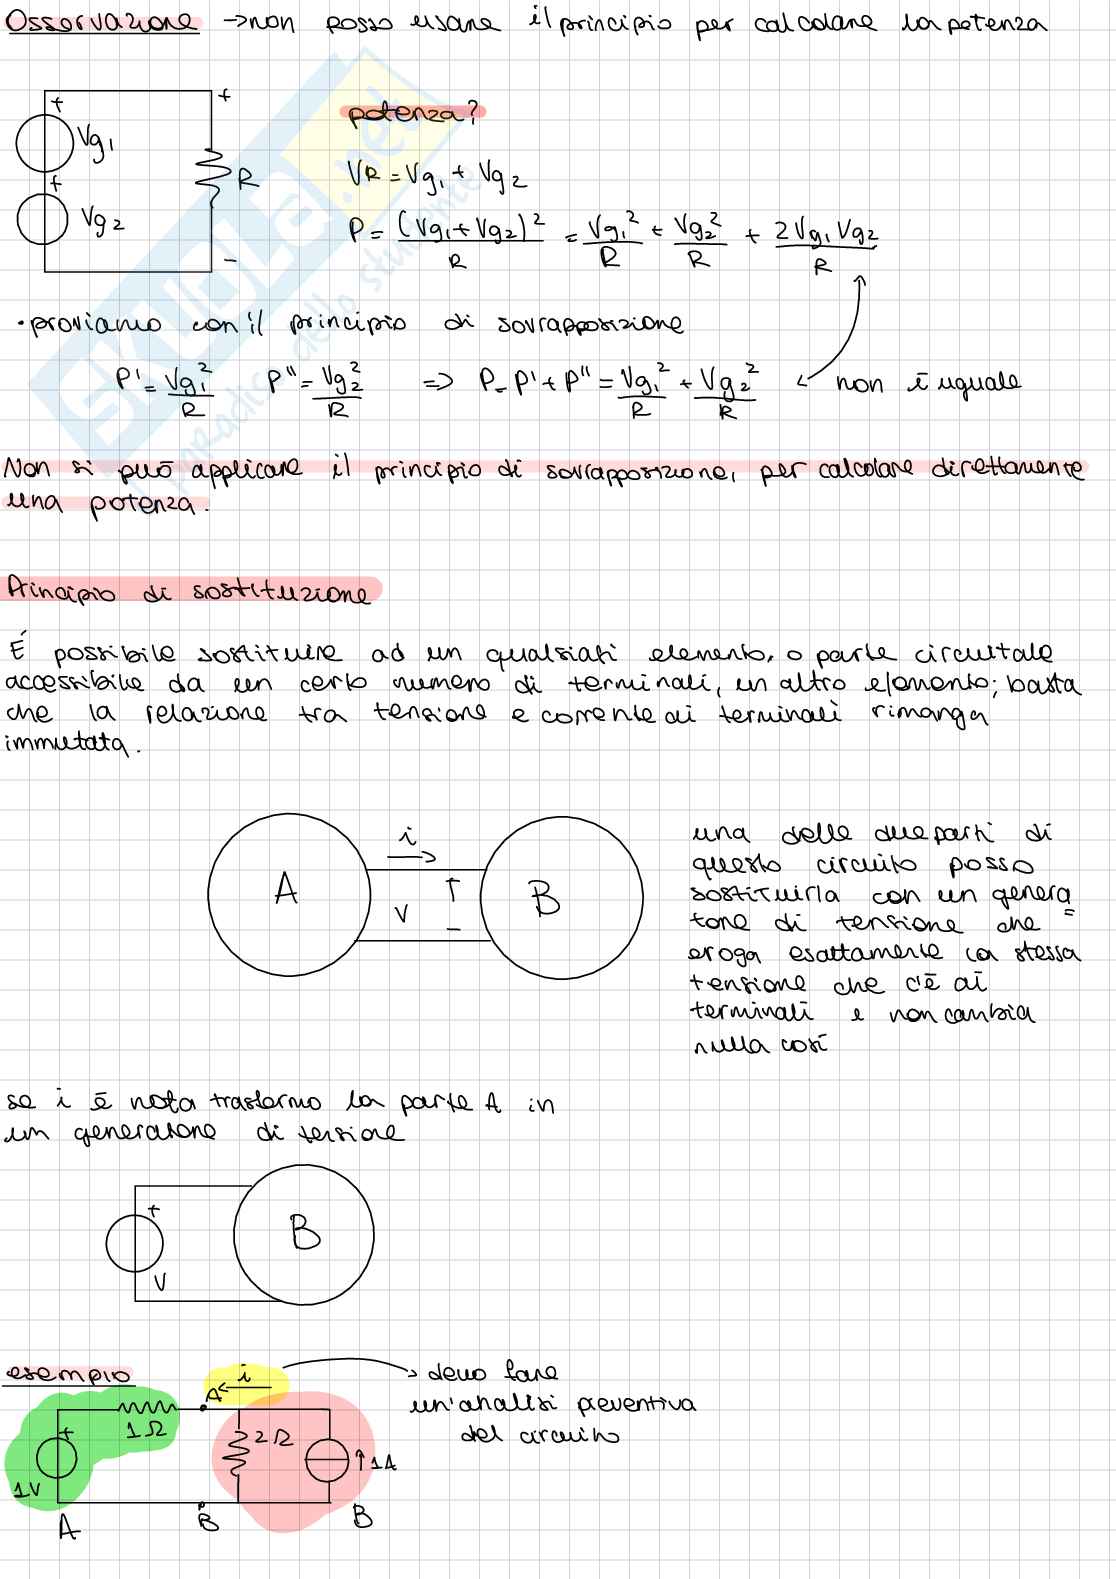 Osservazione → non posso usare il principio per calcolare la potenza
+ +
Vg1
+
R
Vg2
-
potenza?
VR = Vg1 + Vg2
P = (Vg1 + Vg2)² / R = Vg1² / R + Vg2² / R + 2Vg1 Vg2 / R
• proviamo con il principio di sovrapposizione
P' = Vg1² / R   P'' = Vg2² / R   => P = P' + P'' = Vg1² / R + Vg2² / R ← non è uguale
Non si può applicare il principio di sovrapposizione, per calcolare direttamente
una potenza.
Principio di sostituzione
É possibile sostituire ad un qualsiasi elemento, o parte circuitale
accessibile da un certo numero di terminali, un altro elemento; basta
che la relazione tra tensione e corrente ai terminali rimanga
immutata.
A
i
→
V
+
-
B
una delle due parti di
questo circuito posso
sostituirla con un genera=
tore di tensione che
eroga esattamente la stessa
tensione che c'è ai
terminali e non cambia
nulla così
se i è nota trasformo la parte A in
un generatore di tensione
+
V
B
esempio
i
→ devo fare
un'analisi preventiva
del circuito
A
1Ω
+
1V
2Ω
↑1A
A
B
B
SKUOLA.net
paradiso dello studente